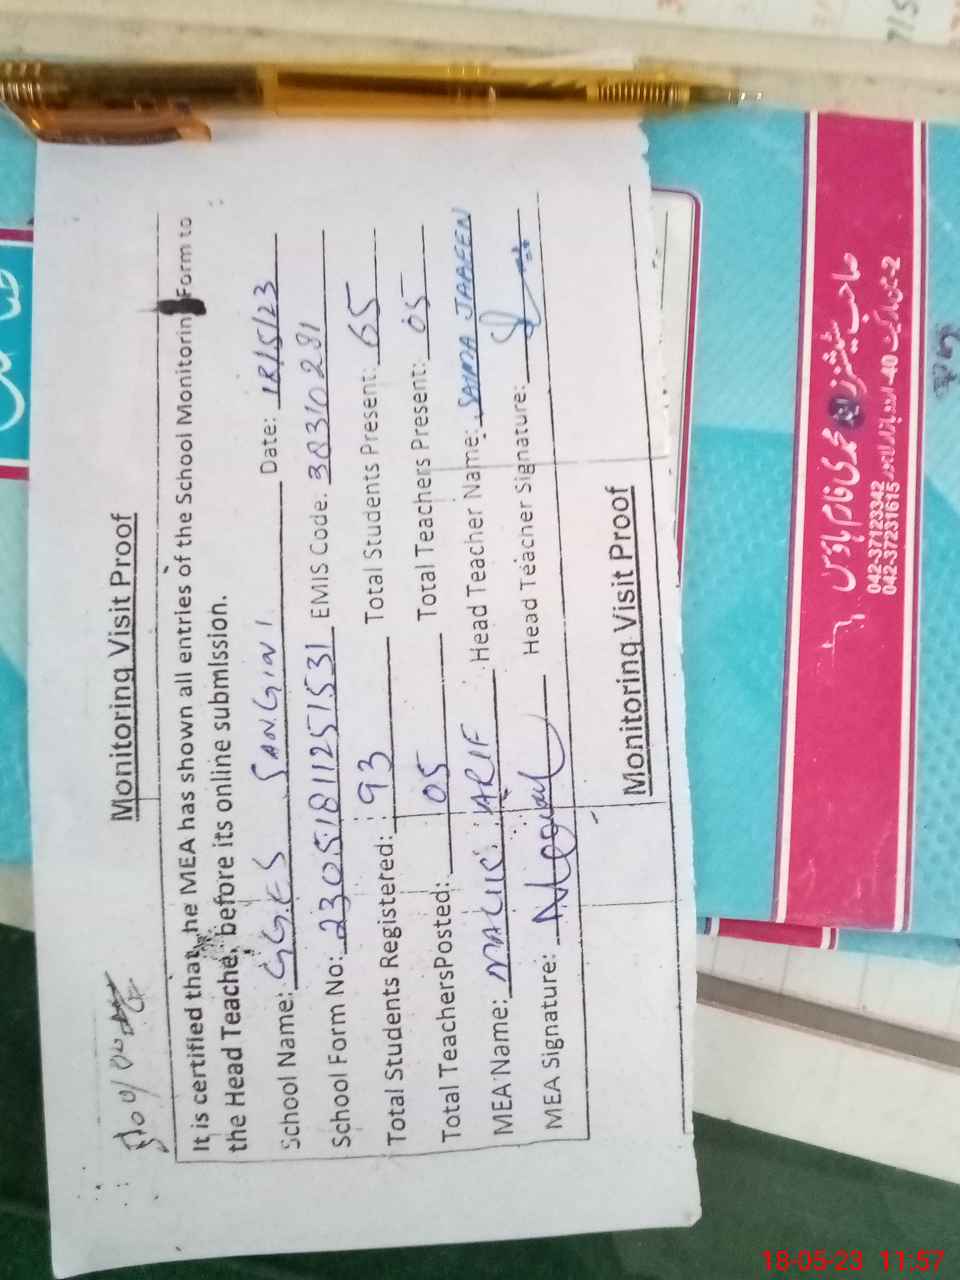 Monitoring Visit Proof
It is certified that he MEA has shown all entries of the School Monitorin Form to
the Head Teache, before its online submission.
School Name: GGES SANGINI Date: 18/5/23
School Form No: 23051811251531 EMIS Code: 38310281
Total Students Registered: 93 Total Students Present: 65
Total TeachersPosted: 05 Total Teachers Present: 05
MEA Name: MALIK ARIF Head Teacher Name: SAIMA JABEEN
MEA Signature: Head Teacher Signature:
Monitoring Visit Proof
محمدی فارم ہاؤس
042-37123342
042-37231615
18-05-23 11:57